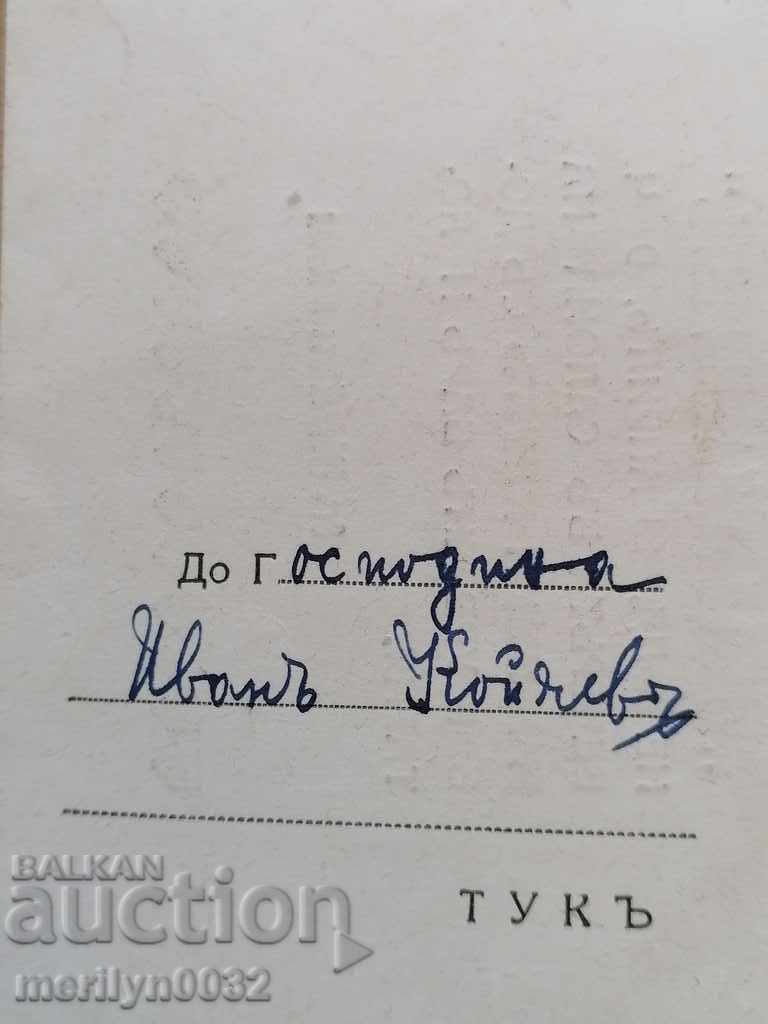 До Господина
Иванъ Койчевъ
ТУКЪ
BALKAN
auction
merilyn0032